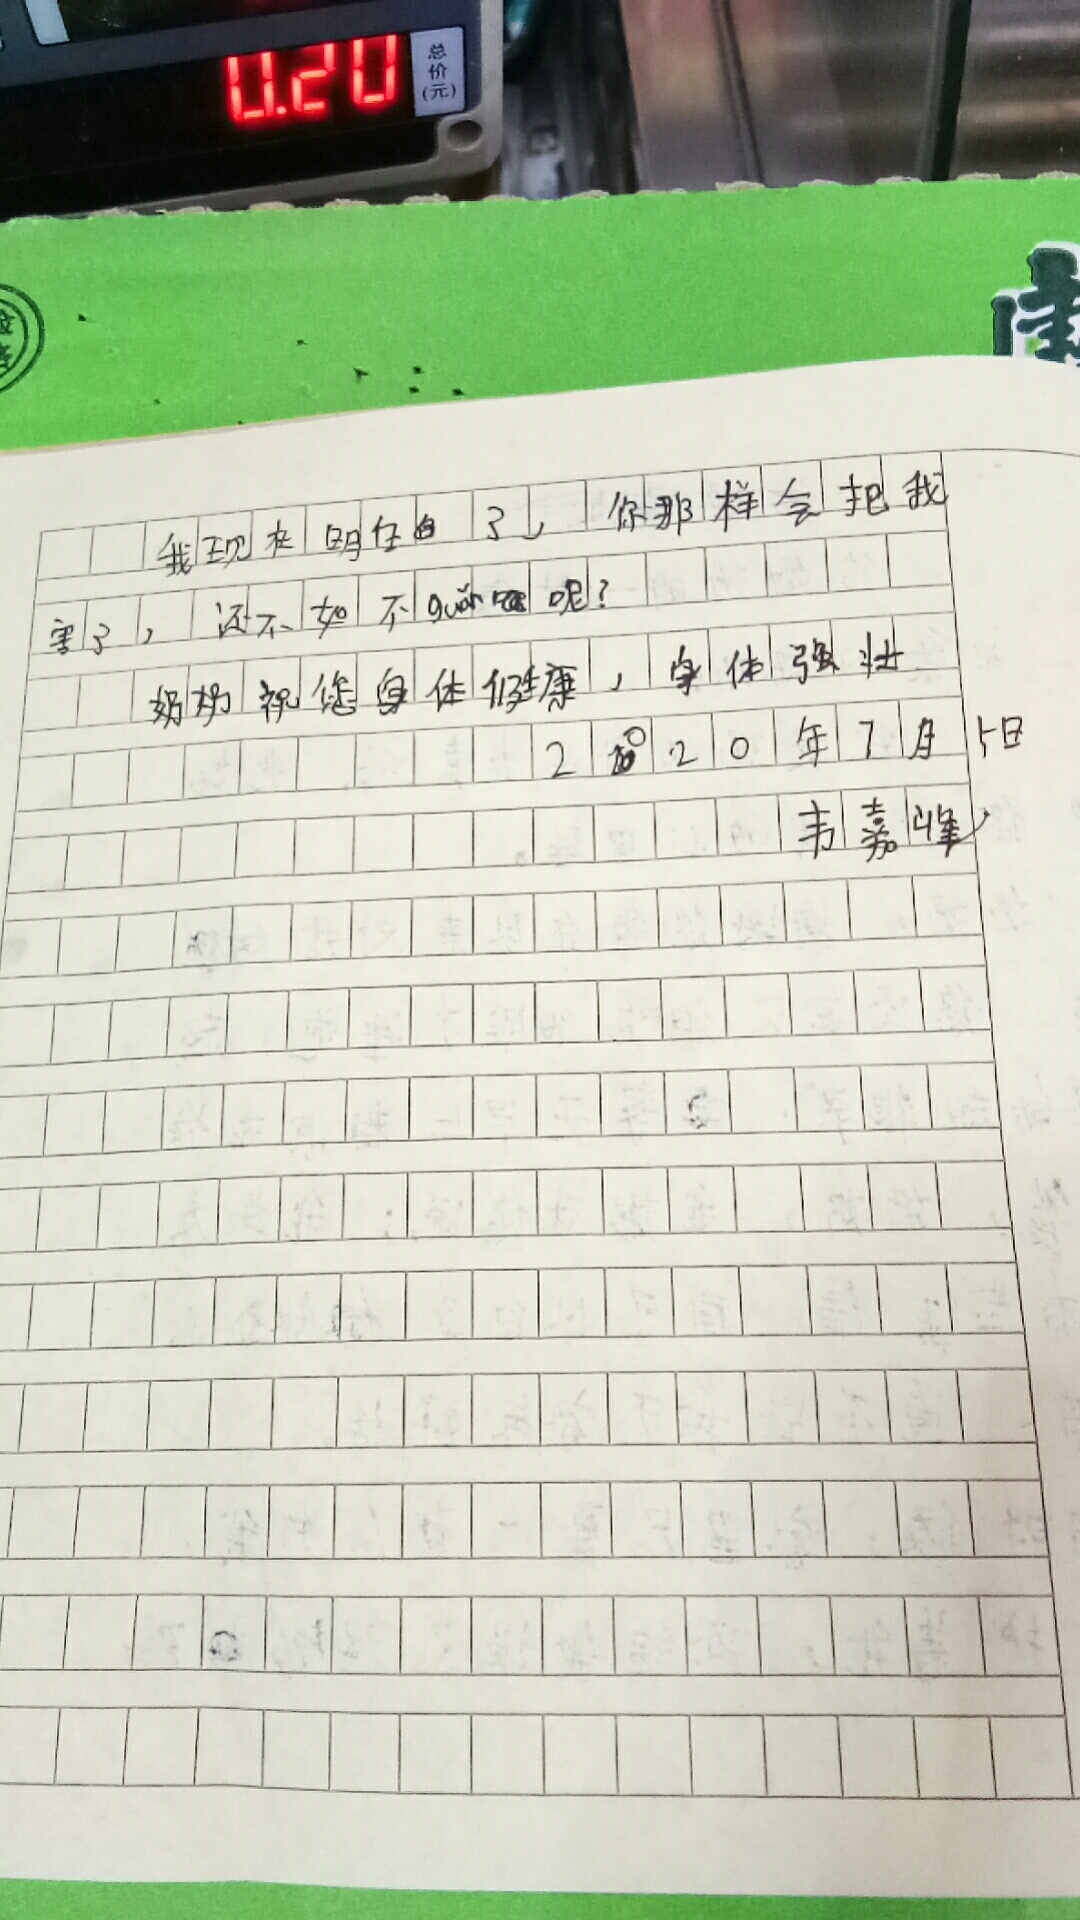 0.20
总价(元)
我现在明白了，你那样会把我
害了，还不如不guǎn 呢？
奶奶祝您身体健康，身体强壮
2020年7月5日
韦嘉峰